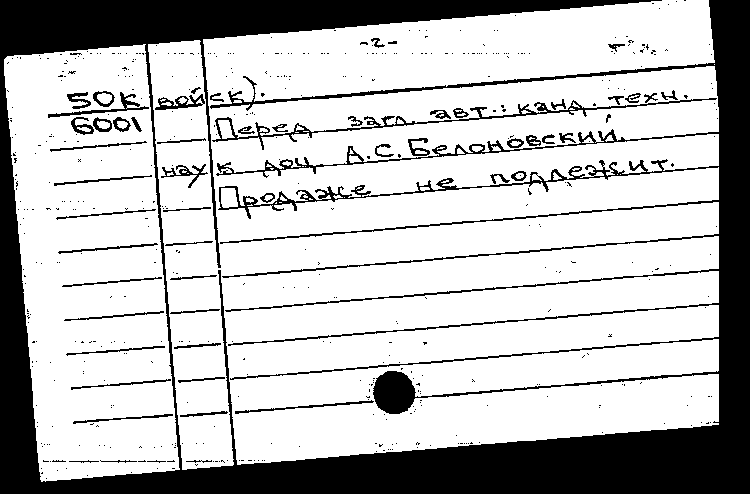 -2-
50К войск).
6001 Перед загл. авт.: канд. техн.
наук доц. А.С. Белоновский.
Продаже не подлежит.